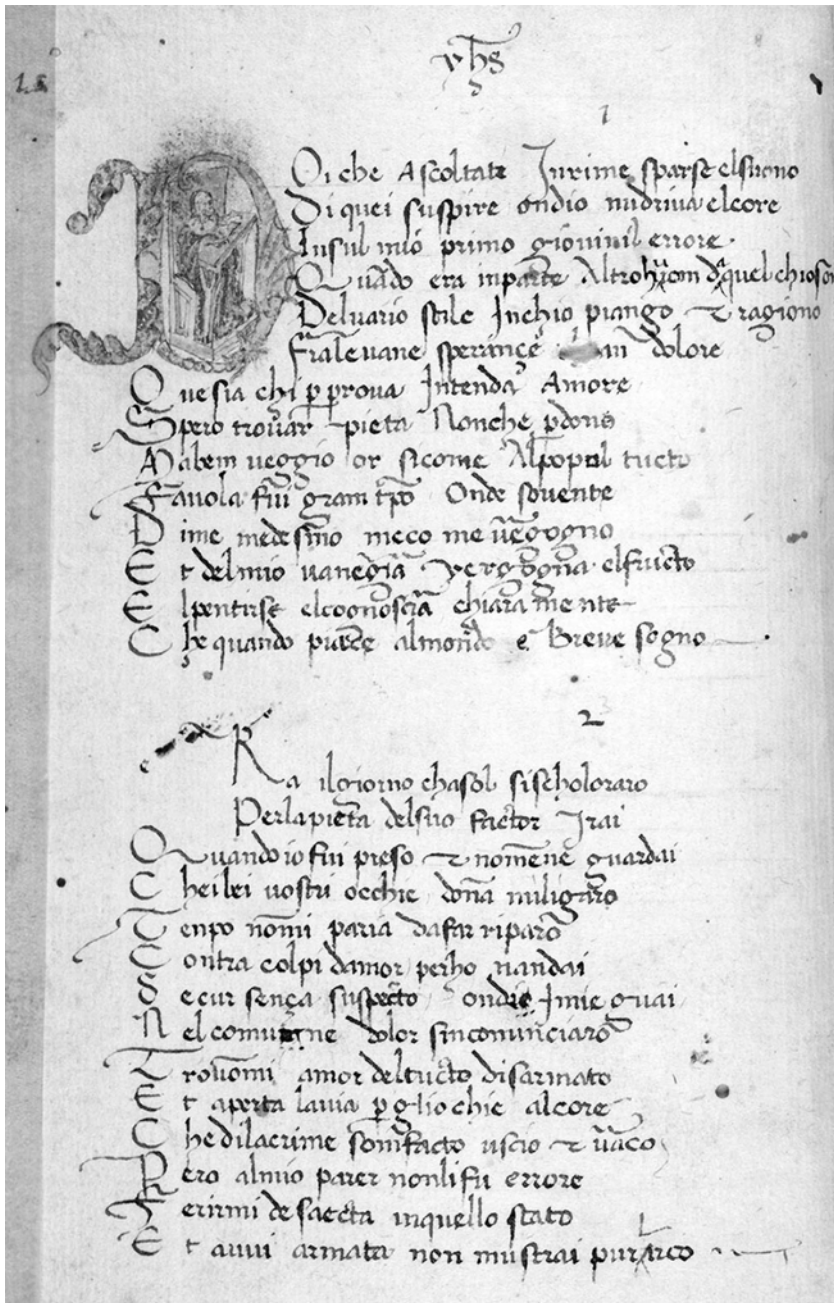 yhs
1
Oi che Ascoltate Inrime sparse elsuono
Di quei suspire ondio nudriva elcore
Insul mio primo giovinil errore
Quādo era inparte Altrohuom da quel chioson
Deluario stile Inchio piango et ragiono
Fralevane sperançe an dolore
Ove sia chi p prova Intenda Amore
Spero trovar pieta Nonche pdono
Mabem veggio or sicome Alpopol tucto
Favola fui gram tpo Onde sovente
Dime medesmo meco me vegogno
Et delmio vanegiā vergogna elfructo
Elpentirse elcognosciā chiara mente
Che quando piace almondo e Breve sogno
2
Ra ilgiorno chasol sischoloraro
Perlapieta delsuo factor Irai
Quando io fui preso et nomene guardai
Cheibei vostri occhie doña miligaro
Tenpo nomi paria dafar riparo
Contra colpi damor perho nandai
Secur sença suspecto ondie Imie guai
Nel comune dolor sincominciaro
Trovomi amor deltucto disarmato
Et aperta lavia p gliochie alcore
Chedilacrime somfacto uscio et vaco
Pero almio parer nonlifu errore
Ferirmi de saecta inquello stato
Et avvi armata non mustrai pur larco